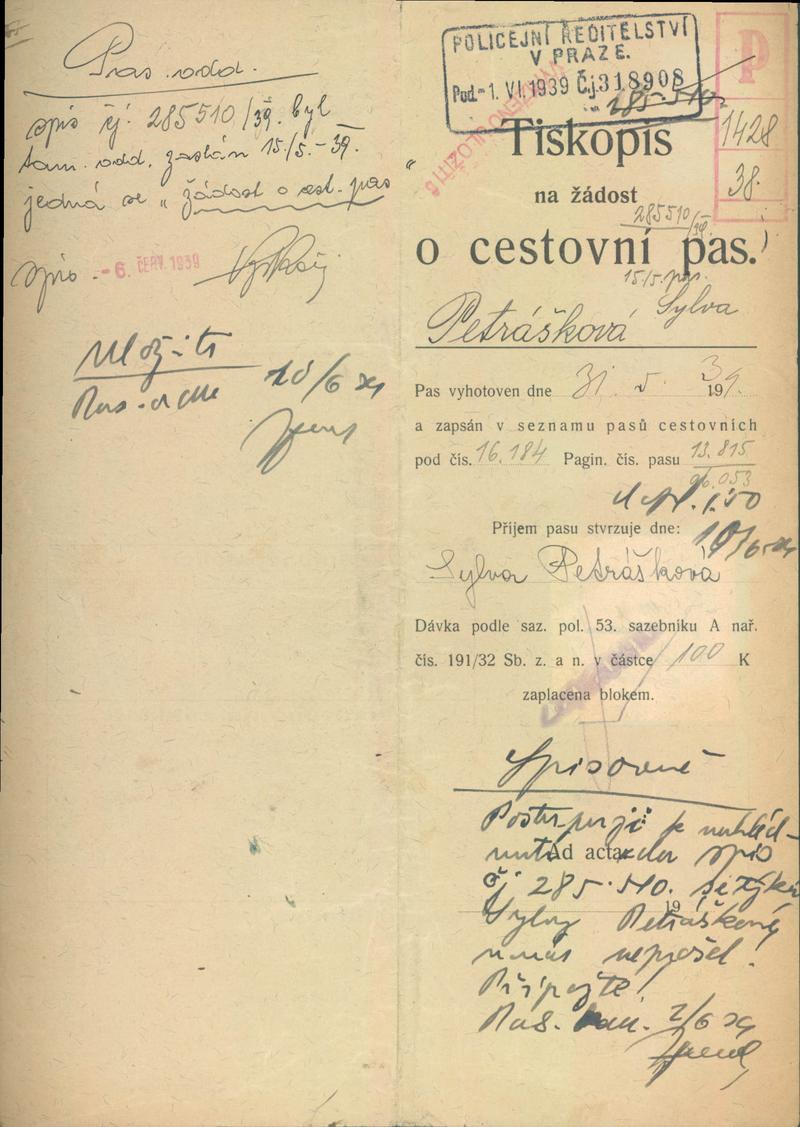 Pas. odd.
spis čj. 285510/39. byl
tam. odd. zaslán 15/5.-39.
jedná se „ žádost o cest. pas
spis. - 6. ČERV. 1939
Uložiti
10/6 39
POLICEJNÍ ŘEDITELSTVÍ
V PRAZE.
Pod - 1. VI. 1939 Čj. 318908
285-510
P
1428
38.
Tiskopis
na žádost
285510/39.
o cestovní pas.
15/5. pas.
Petrášková Sylva
Pas vyhotoven dne 31 5. 1939.
a zapsán v seznamu pasů cestovních
pod čís. 16.184 Pagin. čís. pasu 13.815
96.053
dopl. 1.50
Příjem pasu stvrzuje dne: 10/6 39
Sylva Petrášková
Dávka podle saz. pol. 53. sazebníku A nař.
čís. 191/32 Sb. z. a n. v částce 100 K
zaplacena blokem.
Spisovně
Postupuji k nahléd-
nutí Ad acta spis
čj 285.510. se týká
19
Sylvy Petráškové
u nás nepřošel!
Připojte!
Pas. 2/6 39